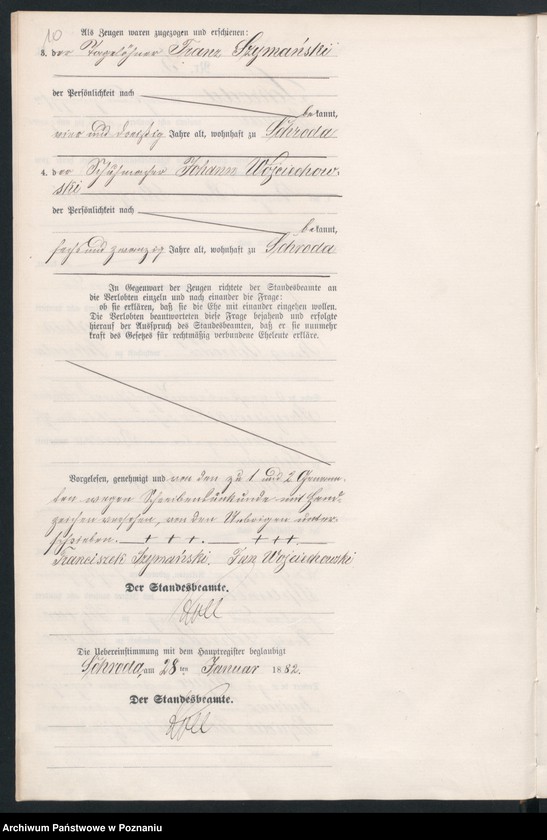 10
Als Zeugen waren zugezogen und erschienen:
3. der Tagelöhner Franz Szymański
der Persönlichkeit nach
bekannt,
vier und dreißig Jahre alt, wohnhaft zu Schroda
4. der Schuhmacher Johann Wojciechow-
ski
der Persönlichkeit nach
bekannt,
sechs und zwanzig Jahre alt, wohnhaft zu Schroda
In Gegenwart der Zeugen richtete der Standesbeamte an
die Verlobten einzeln und nach einander die Frage:
ob sie erklären, daß sie die Ehe mit einander eingehen wollen.
Die Verlobten beantworteten diese Frage bejahend und erfolgte
hierauf der Ausspruch des Standesbeamten, daß er sie nunmehr
kraft des Gesetzes für rechtmäßig verbundene Eheleute erkläre.
Vorgelesen, genehmigt und von den zu 1 und 2 Genann-
ten wegen Schreibensunkunde mit Hand-
zeichen versehen, von den Uebrigen unter-
schrieben. + + + . + + +
Franciszek Szymański. Jan Wojciechowski
Der Standesbeamte.
Die Uebereinstimmung mit dem Hauptregister beglaubigt
Schroda, am 28 ten Januar 1882.
Der Standesbeamte.
Archiwum Państwowe w Poznaniu